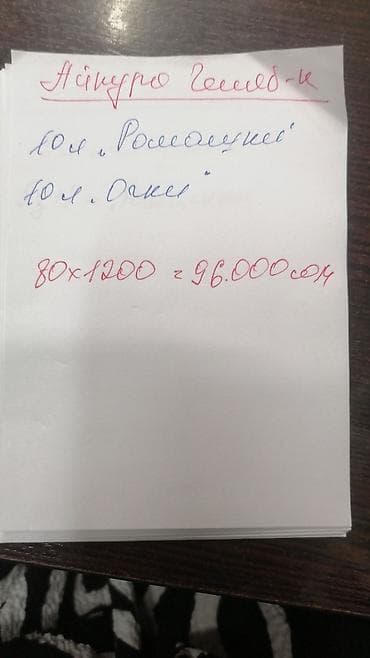 Айкуро Челяб-к
10 л. „Ромашки"
10 л. „Очки"
80x1200 = 96.000 сом